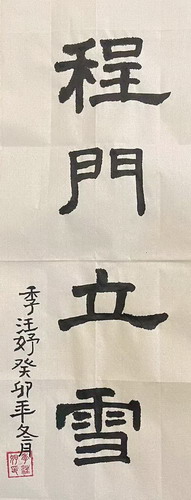 程門立雪
季汪妤癸卯年冬月